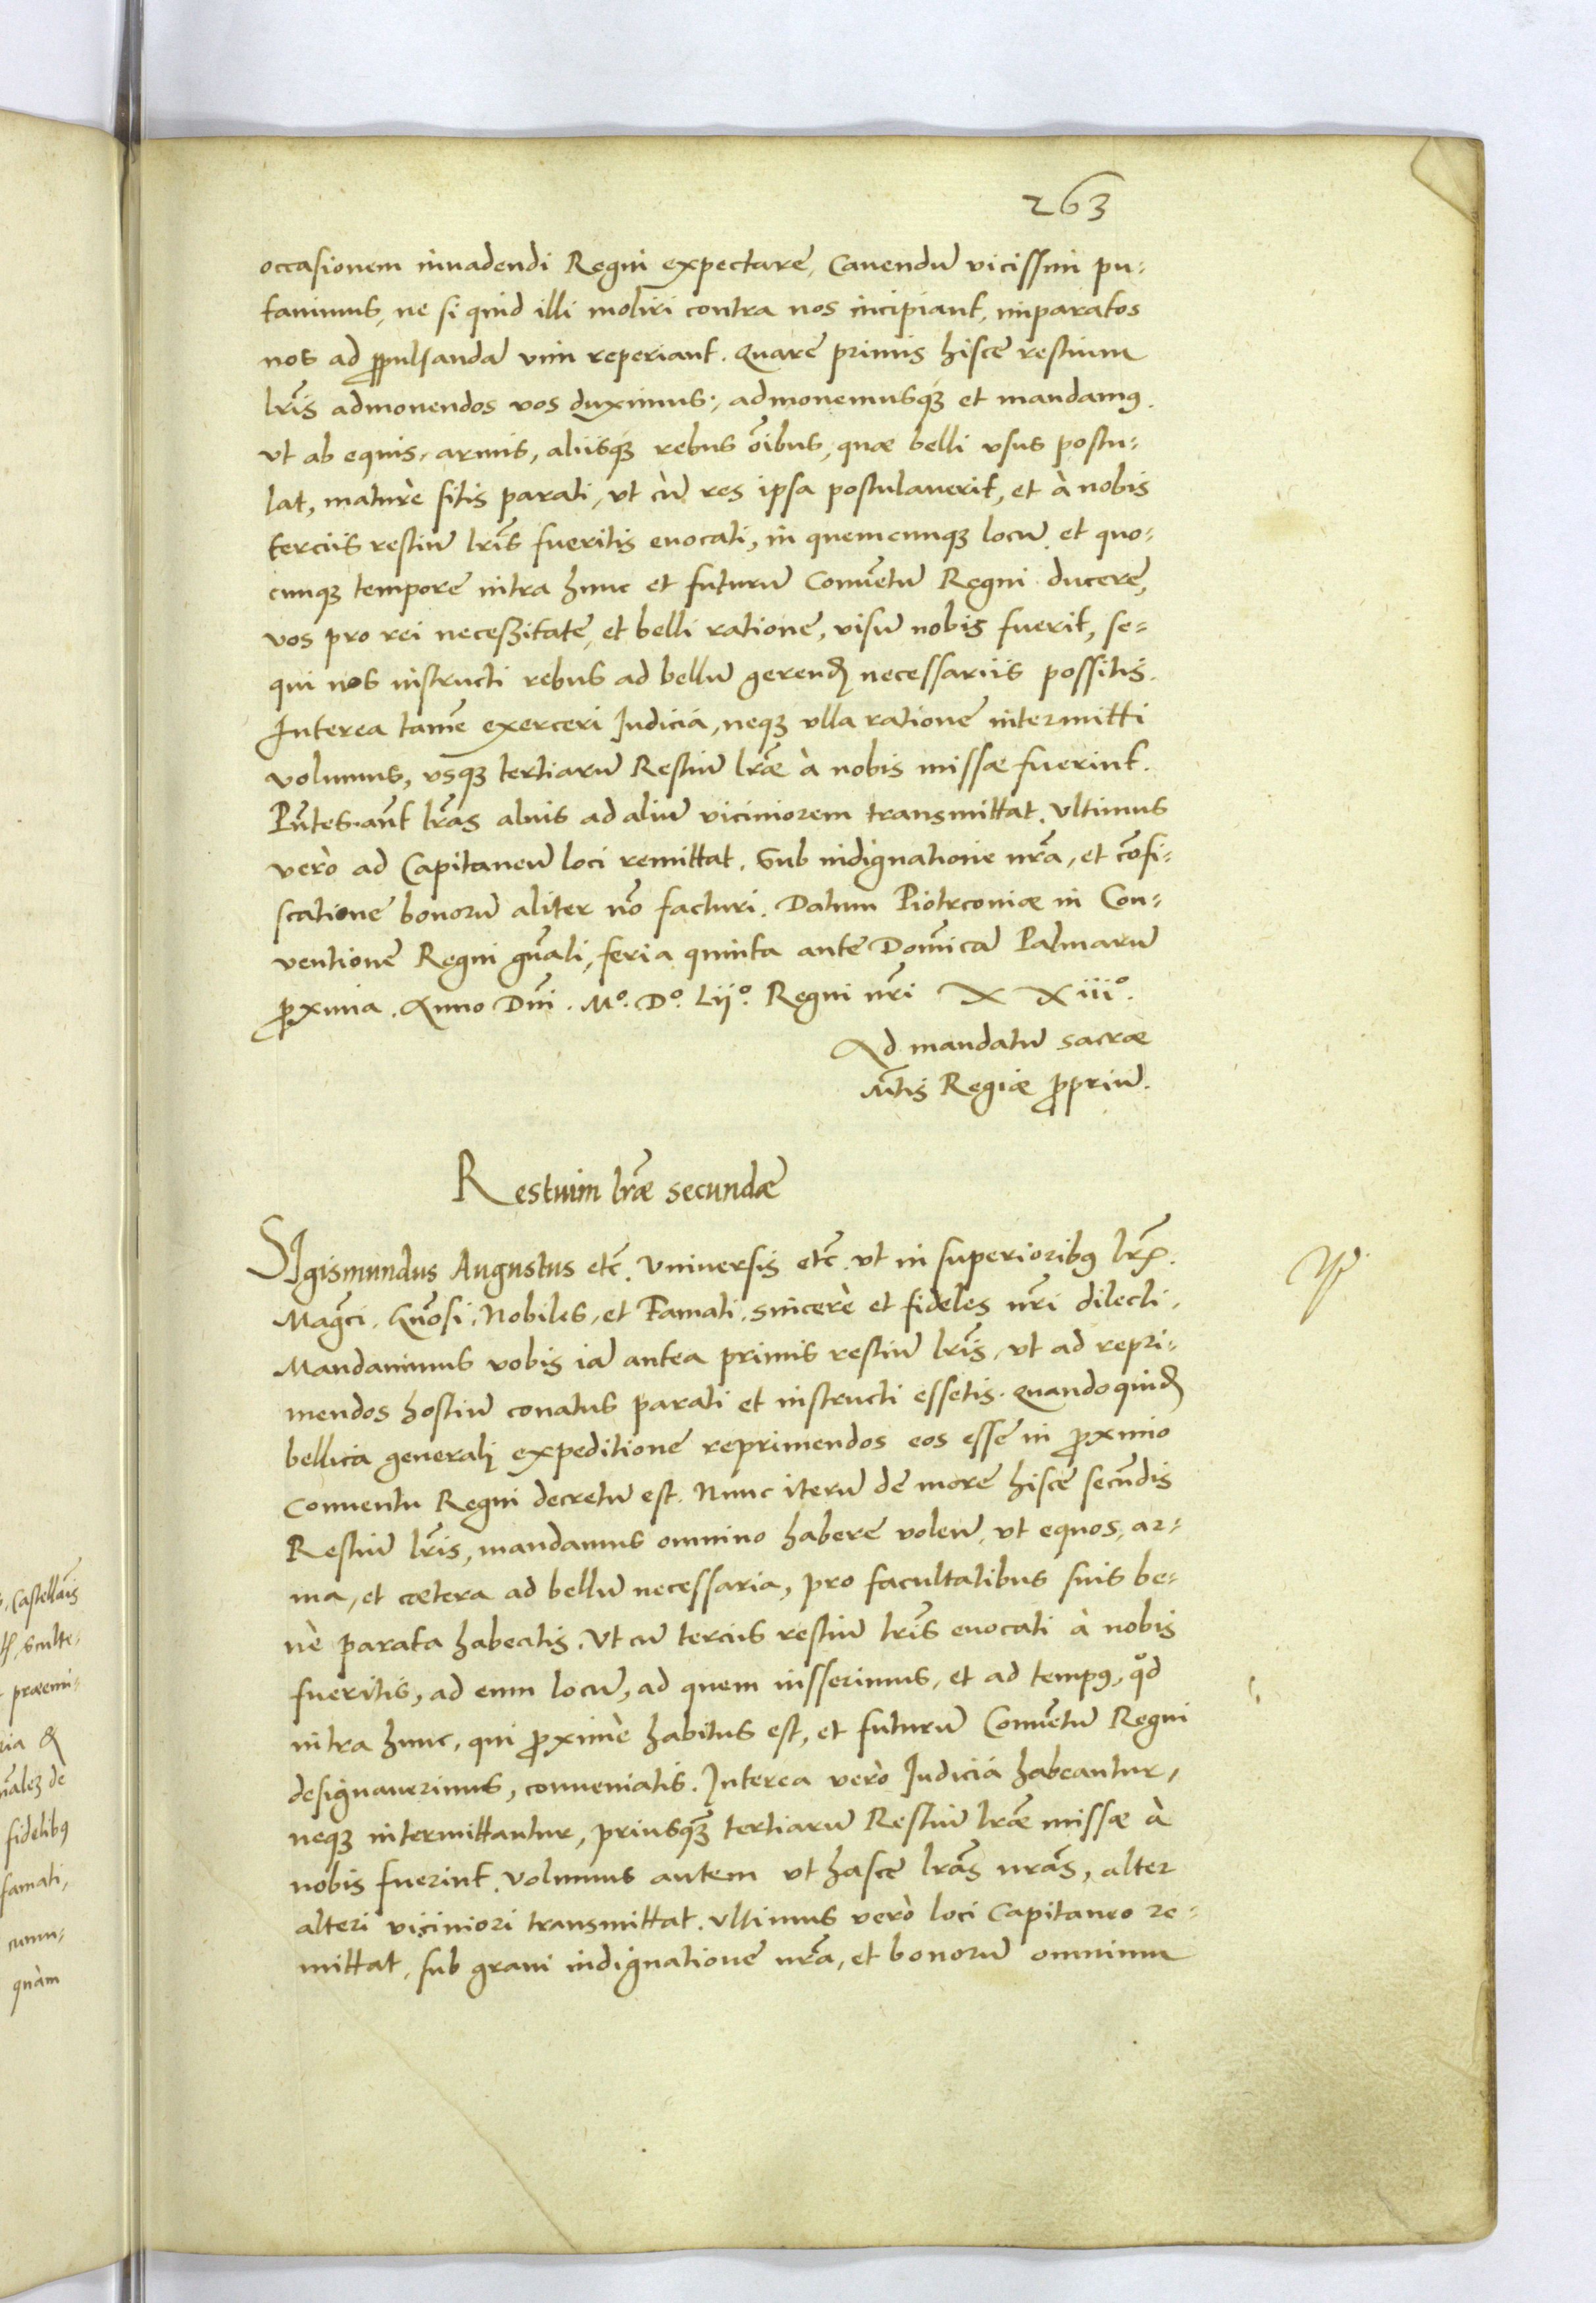 263
occasionem inuadendi Regni expectare, Cauendũ vicissim pu-
tauimus, ne si quid illi moliri contra nos incipiant, imparatos
nos ad ꝓpulsandã vim reperiant. Quare primis hisce restium
lr̃is admonendos vos duximus, admonemusqȝ et mandamꝰ.
vt ab equis, armis, aliisqȝ rebus oĩbus, quæ belli vsus postu-
lat, mature sitis parati, vt cũ res ipsa postulauerit, et à nobis
terciis restiũ lr̃is fueritis euocati, in quemcunqȝ locũ et quo-
cunqȝ tempore intra hunc et futurũ Conuẽtũ Regni ducere,
vos pro rei neceßitate, et belli ratione, visũ nobis fuerit, se-
qui nos instructi rebus ad bellũ gerend̃ necessariis possitis.
Interea tamẽ exerceri Iudicia, neqȝ vlla ratione intermitti
volumus, vsqȝ tertiarũ Restiũ lr̃æ à nobis missæ fuerint.
Pñtes aũt lr̃as alius ad aliũ viciniorem transmittat. Vltimus
vero ad Capitaneũ loci remittat. Sub indignatione nr̃a, et cõfi-
scatione bonorũ aliter nõ facturi. Datum Piotrconiæ in Con-
uentione Regni gñali, feria quinta ante Domĩcã Palmarũ
ꝓxima. Anno Dñi. Mº. Dº. Lijº. Regni nr̃i XXiiiº.
Ad mandatũ sacræ
Mtis Regiæ ꝓpriũ.
Restium lr̃æ secundæ
SIgismundus Augustus etc̃. Vniuersis etc̃. vt in superioribꝰ lr̃is.
Magc̃i, Gñosi, Nobiles, et Famati, sincere et fideles nr̃i dilecti.
Mandauimus vobis iã antea primis restiũ lr̃is, vt ad repri-
mendos hostiũ conatus parati et instructi essetis. Quandoquid̃
bellica generali expeditione reprimendos eos esse in ꝓximo
Conuentu Regni decretũ est. Nunc iterũ de more hisce secũdis
Restiũ lr̃is, mandamus omnino habere volen̄, vt equos, ar-
ma, et cætera ad bellũ necessaria, pro facultatibus suis be-
nè parata habeatis. Vt cũ terciis restiũ lr̃is euocati à nobis
fueritis, ad eum locũ, ad quem iusserimus, et ad tempꝰ, qd̃
intra hunc, qui ꝓxime habitus est, et futurũ Conuẽtũ Regni
designauerimus, conueniatis. Interea vero Iudicia habeantur,
neqȝ intermittantur, priusqȝ̃ tertiarũ Restiũ lr̃æ missæ à
nobis fuerint. Volumus autem vt hasce lr̃as nr̃as, alter
alteri viciniori transmittat. Vltimus verò loci Capitaneo re-
mittat, sub graui indignatione nr̃a, et bonorũ omnium